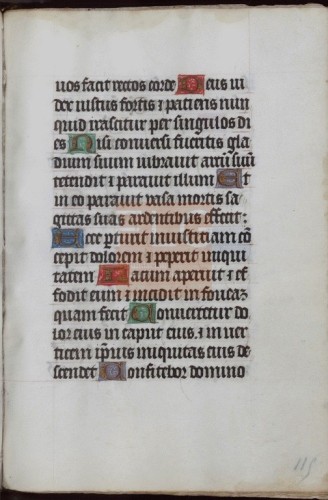 uos facit rectos corde Deus iu
dex iustus fortis ⁊ patiens nun
quid irascitur per singulos di
es Nisi conuersi fueritis gla
dium suum uibrauit arcū suū
tetendit ⁊ parauit illum Et
in eo parauit uasa mortis sa
gittas suas ardentibus effecit:
Ecce parturit iniusticiam cō
cepit dolorem ⁊ peperit iniqui
tatem Lacum aperuit ⁊ ef
fodit eum ⁊ incidit in foueaz
quam fecit Conuertetur do
lor eius in caput eius. ⁊ in uer
ticem ip̄ius iniquitas eius de
scendet Confitebor domino
115